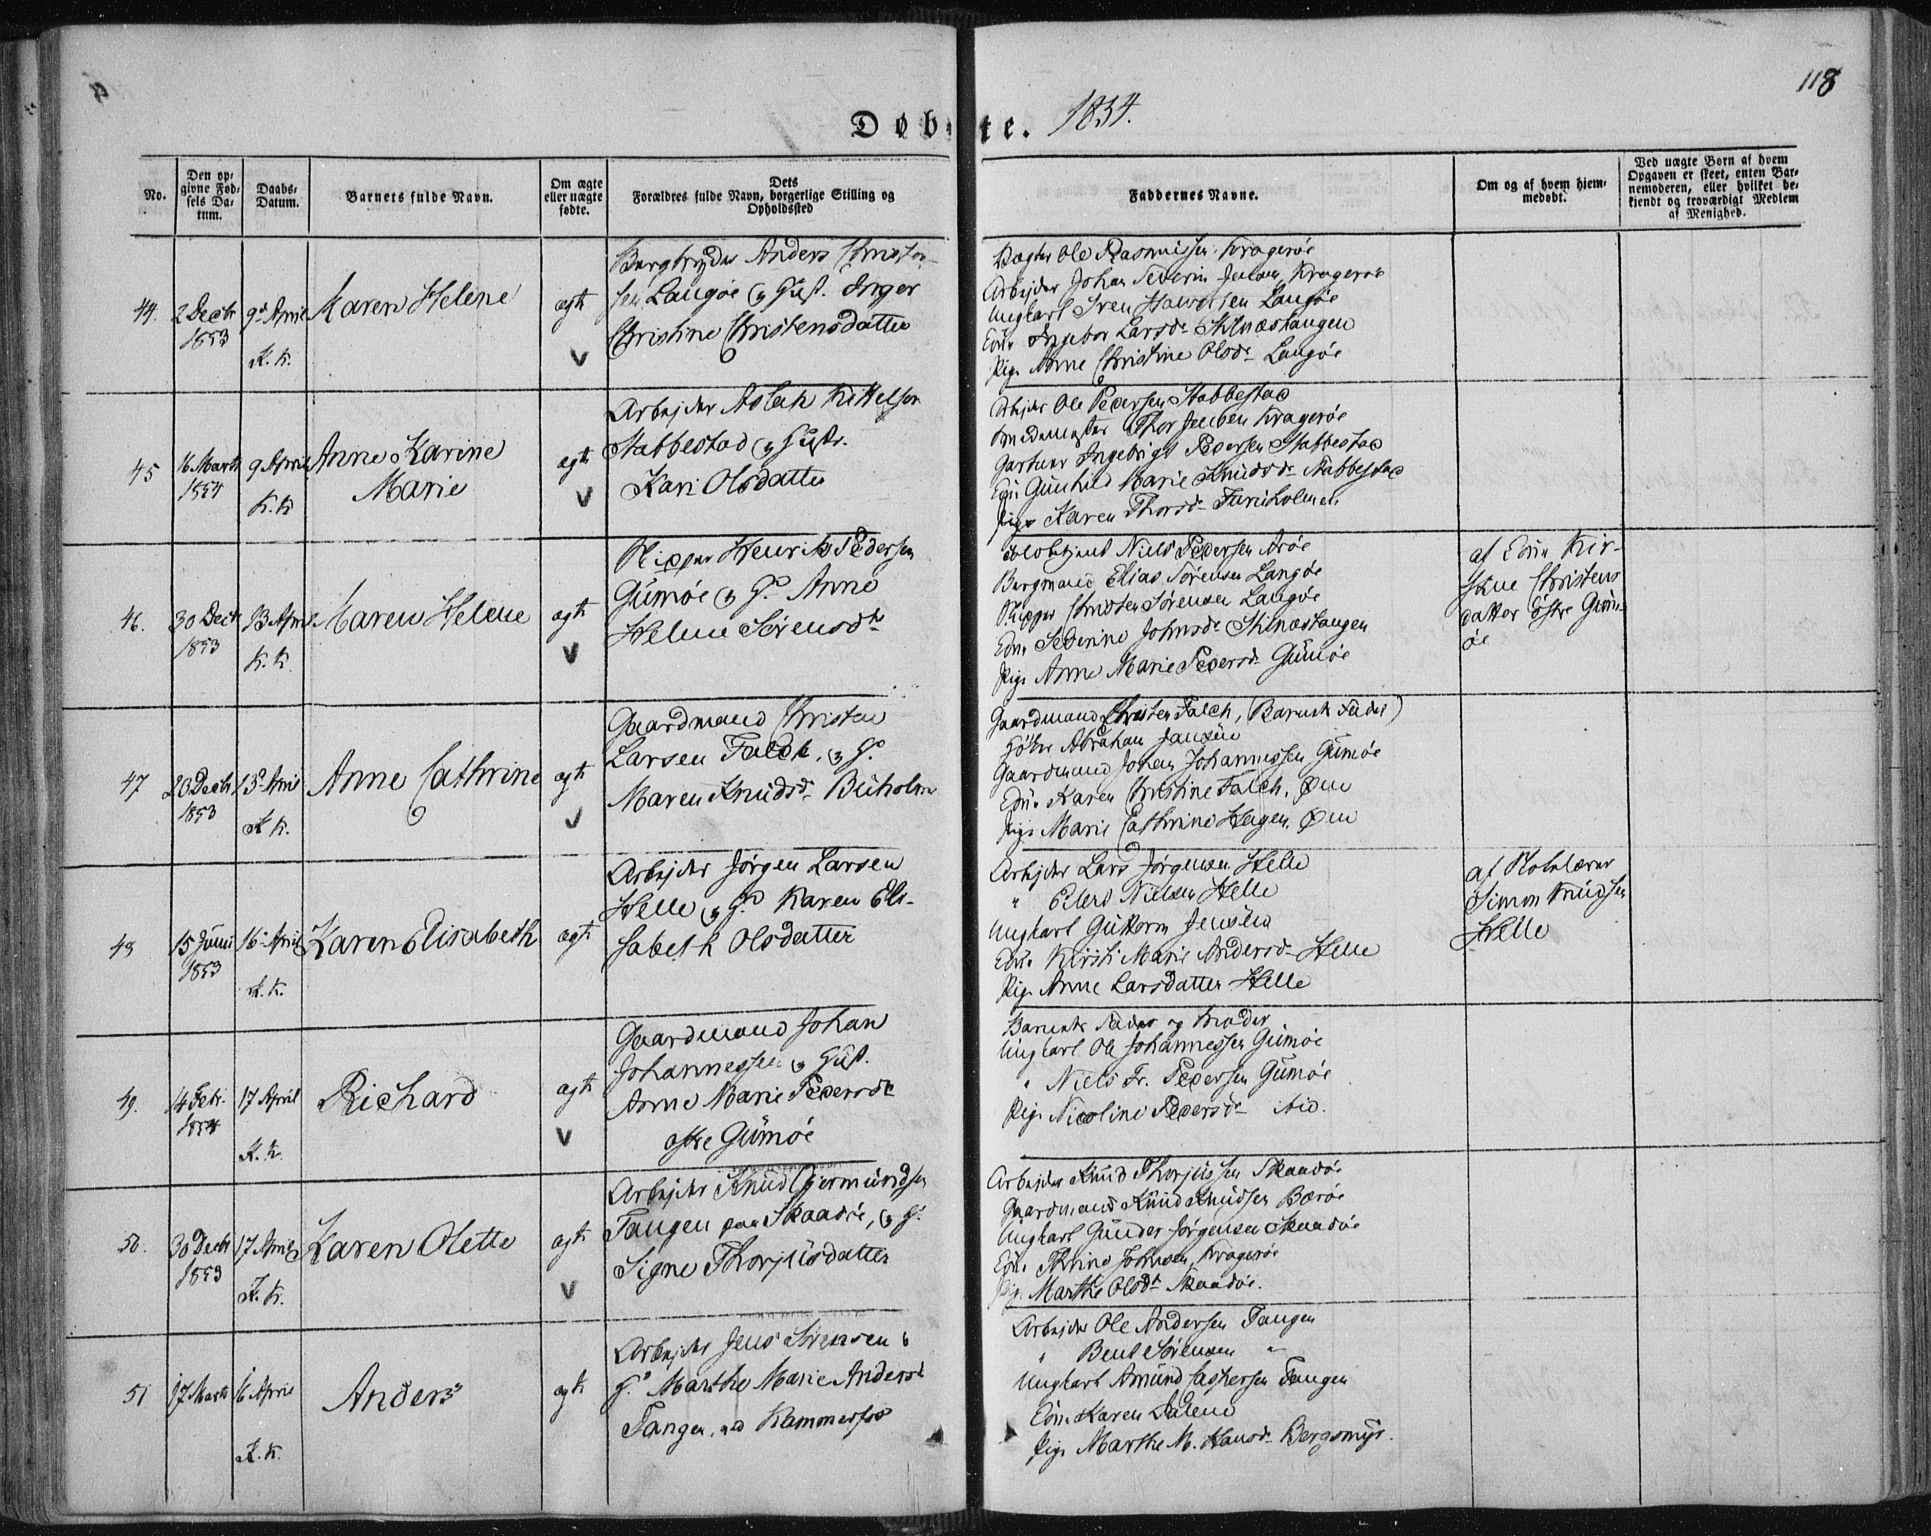 118
Døbte. 1854.
No.
Den opgivne Fødsels Datum.
Daabs-Datum.
Barnets fulde Navn.
Om ægte eller uægte fødte.
Dets Forældres fulde Navn, borgerlige Stilling og Opholdssted
Faddernes Navne.
Om og af hvem hjemmedøbt.
Ved uægte Børn af hvem Opgaven er skeet, enten Barnemoderen, eller hvilket bekiendt og troværdigt Medlem af Menighed.
44. 2 Decbr 1853
9de April K. K.
Maren Helene
ægte
Anders Christen-
sen Langøe og Hust. Inger
Christine Christensdatter
Ole Rasmussen Kragerøe
Arbejder Johan Severin Kragerøe
Ungkarl Sven Halvorsen Langøe
Ingebor Larsd. Stilnæstangen
Pige Anne Christine Olsdr Langøe
45 16 Marts 1854
9 April K. K
Anne Karine
Marie
ægte
Arbejder Aslak Kittelsen
Stabbestad og Hustr.
Kari Olsdatter
Arbejder Ole Pedersen Stabbestad
Thor Jensen Kragerøe
Gartner Ingebrigt Pedersen Stabbestad
Gunhild Marie Knudsdr Stabbestad
Pige Karen Thorsdr Furuholmen
46. 30 Decbr 1853
13 April K. K.
Maren Helene
ægte
Skipper Henrik Pedersen
Gumøe og H. Anne
Helene Sørensdr
Niels Pedersen Arøe
Bergmand Elias Sørensen Langøe
Skipper Christen Sørensen Langøe
Severine Johnsdr Stilnæstangen
Pige Anne Marie Pedersdr Gumøe
af Kir-
stine Christens
datter østre Gum-
øe
47 20 Decbr 1853
13de April K K.
Anne Cathrine
ægte
Gaardmand Christen
Larsen Falch, og H.
Maren Knudsdr Buholm
Gaardmand Christen Falch, (Barnets Fader)
Abraham Jansen
Gaardmand Johan Johannessen Gumøe
Karen Christine Falch, Øen
Pige Marie Cathrine Hagen, Øen
48 15 Juni 1853
16 April K. K.
Karen Elisabeth
ægte
Arbejder Jørgen Larsen
Helle og H. Karen Eli-
sabeth Olsdatter
Arbejder Lars Jørgensen Helle
" Peders Nielsen Helle
Ungkarl Guttorm Jensen
Kirsti Marie Andersdr Helle
Pige Anne Larsdatter Helle
af Skolelærer
Simon Knudsen
Helle
49. 14 Febr. 1854
17 April K. K.
Richard
ægte
Gaardmand Johan
Johannessen og Hust.
Anne Marie Pedersdr
østre Gumøe
Barnets Fader og Moder
Ungkarl Ole Johannessen Gumøe
" Niels Fr. Pedersen Gumøe
Pige Nicoline Pedersdr ibid.
50. 30 Decbr 1853
17 April K. K.
Karen Olette
ægte
Arbejder Knud Gjermundsen
Tangen paa Skaadøe, og H.
Signe Thorjusdatter
Arbejder Knud Thorjussen Skaadøe
Gaardmand Knud Knudsen Bærøe
Ungkarl Gunder Jørgensen Skaadøe
Johnsen, Kragerøe
Pige Marthe Olsdr Skaadøe.
51 17 Marts
16 April K. K.
Anders
ægte
Arbejder Jens Sørensen &
H. Marthe Marie Andersd
Tangen ved Kammerfos
Arbejder Ole Andersen Tangen
" Bent Sørensen "
Ungkarl Amund Caspersen Tangen
Karen Dalene
Pige Marthe M. Hansdr Bergsmyr.